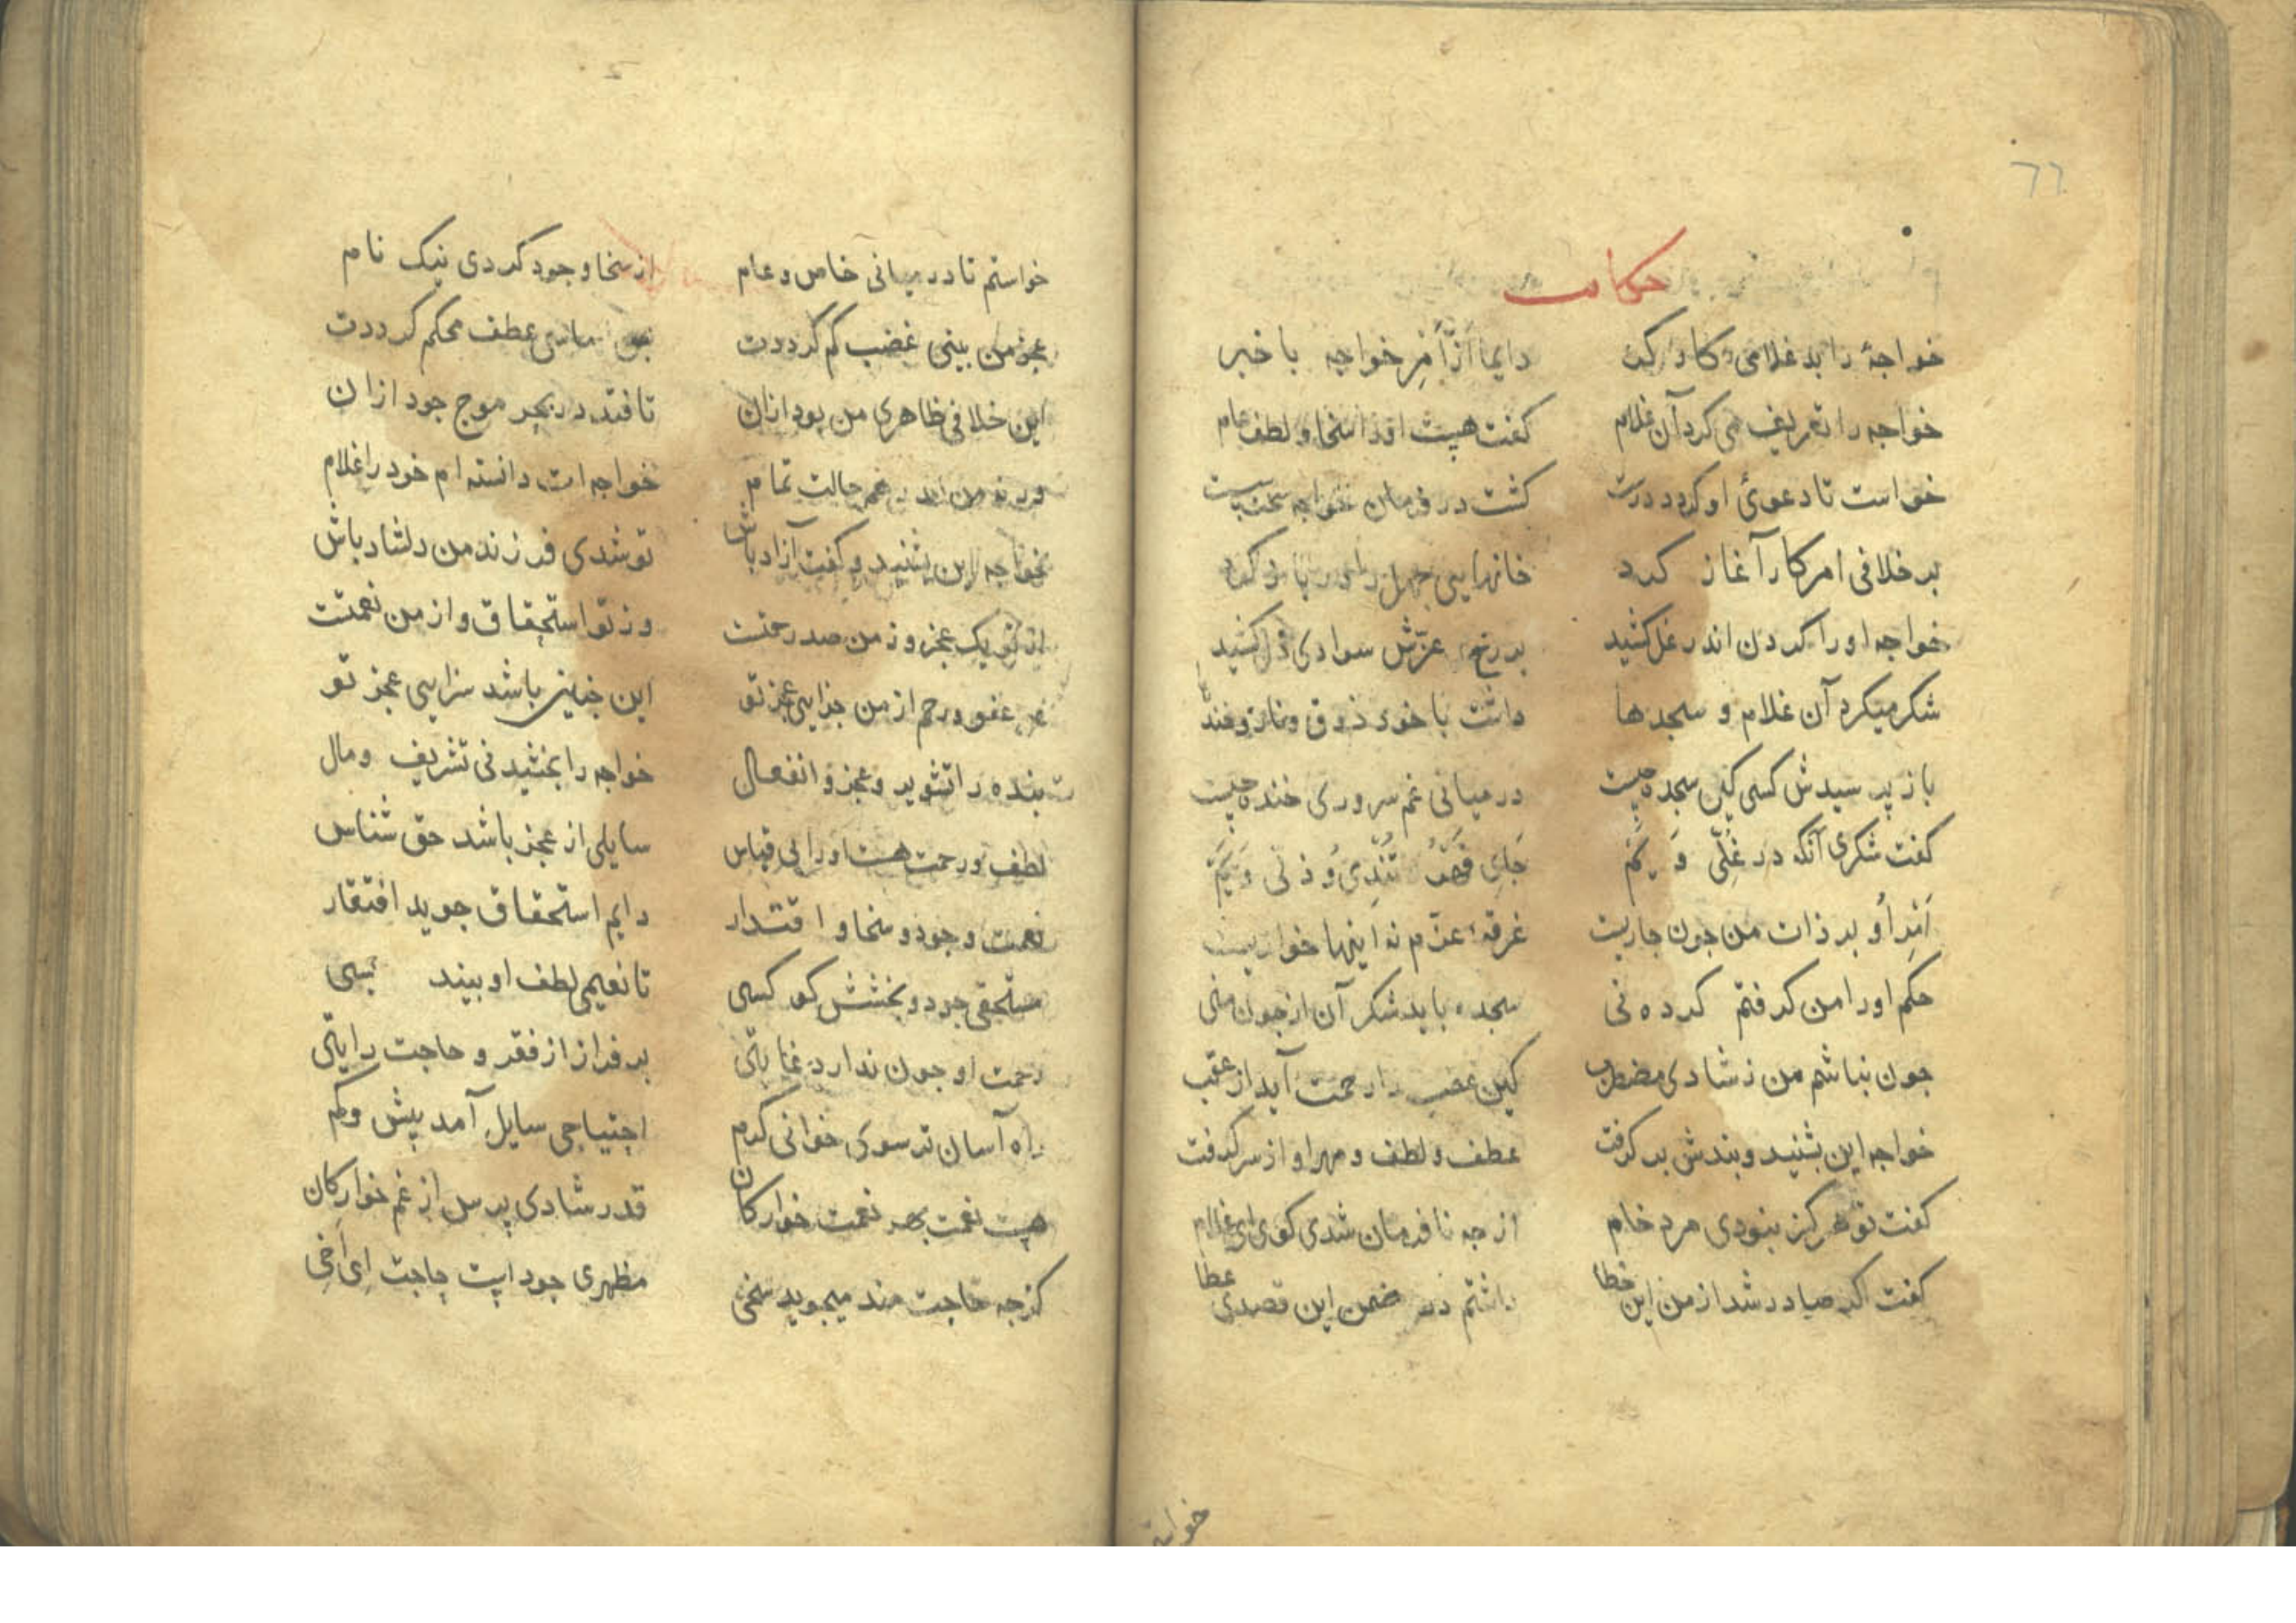 ٦٦
حکایت
خواجهٔ را بد غلامی کارکن دایما از امر خواجه با خبر
خواجه را تعریف می کرد آن غلام کفت هست اورا سخا و لطف عام
خواست تا دعوئ او کردد درست کشت در فرمان خواجه سخت سست
بر خلافی امر کار آغاز کرد خانهایی جهل را
خواجه اورا کردن اندر غل کشید بر رخ عزتش سوادی ذل کشید
شکر میکرد آن غلام و سجدها داشت با خود ذوق و ناز و خندها
باز پرسیدش کسی کین سجده چیست در میانی غم سروری خنده چیست
کفت شکری آنکه در غلی و یم جای قهر تندی و ذلی و یم
امر او بر ذات من جون جاریست غرقهٔ عزم نه اینها خواریست
حکم اورا من کرفتم کرده نی سجده باید شکر آن از جون منی
جون نباشم من ز شادی مضطرب کین غضب را رحمت آید از عقب
خواجه این بشنید و بندش بر کرفت عطف و لطف و مهر او از سر کرفت
کفت تو هرکز نبودی مرد خام از جه نافرمان شدی کوی ای غلام
کفت اکر صادر شد از من این خطا داشتم در ضمن این قصدی عطا
خواستم تا در میانی خاص و عام از سخا و جود کردی نیک نام
عجز من بینی غضب کم کرددت عطف محکم کرددت
این خلافی ظاهری من بود ازان تا فتد در بحر موج جود ازان
ورنه من اندر همه حالت تمام خواجه ات دانسته ام خود را غلام
خواجه این بشنید و کفت آزاد باش تو شدی فرزند من دلشاد باش
از تو یک عجز و ز من صد رحمتت وز تو استحقاق و از من نعمتت
عفو و رحم از من جزایی عجز تو این جنین باشد سزایی عجز تو
بنده را تشویر و عجز و انفعال خواجه را بخشیدنی تشریف و مال
لطف و رحمت هست اورا بی قیاس سایلی از عجز باشد حق شناس
نعمت و جود و سخا و اقتدار دایم استحقاق جوید افتقار
مستحقی جود و بخشش کو کسی تا نعیمی لطف او بیند بسی
رحمت او جون ندارد غایتی بر فراز از فقر و حاجت رایتی
راه آسان تر سوی خوانی کرم احتیاجی سایل آمد بیش و کم
هست نعمت بهر نعمت خوارکان قدر شادی پرس از غم خوارکان
کرجه حاجت مند میجوید سخی مظهری جود است حاجت ای اخی